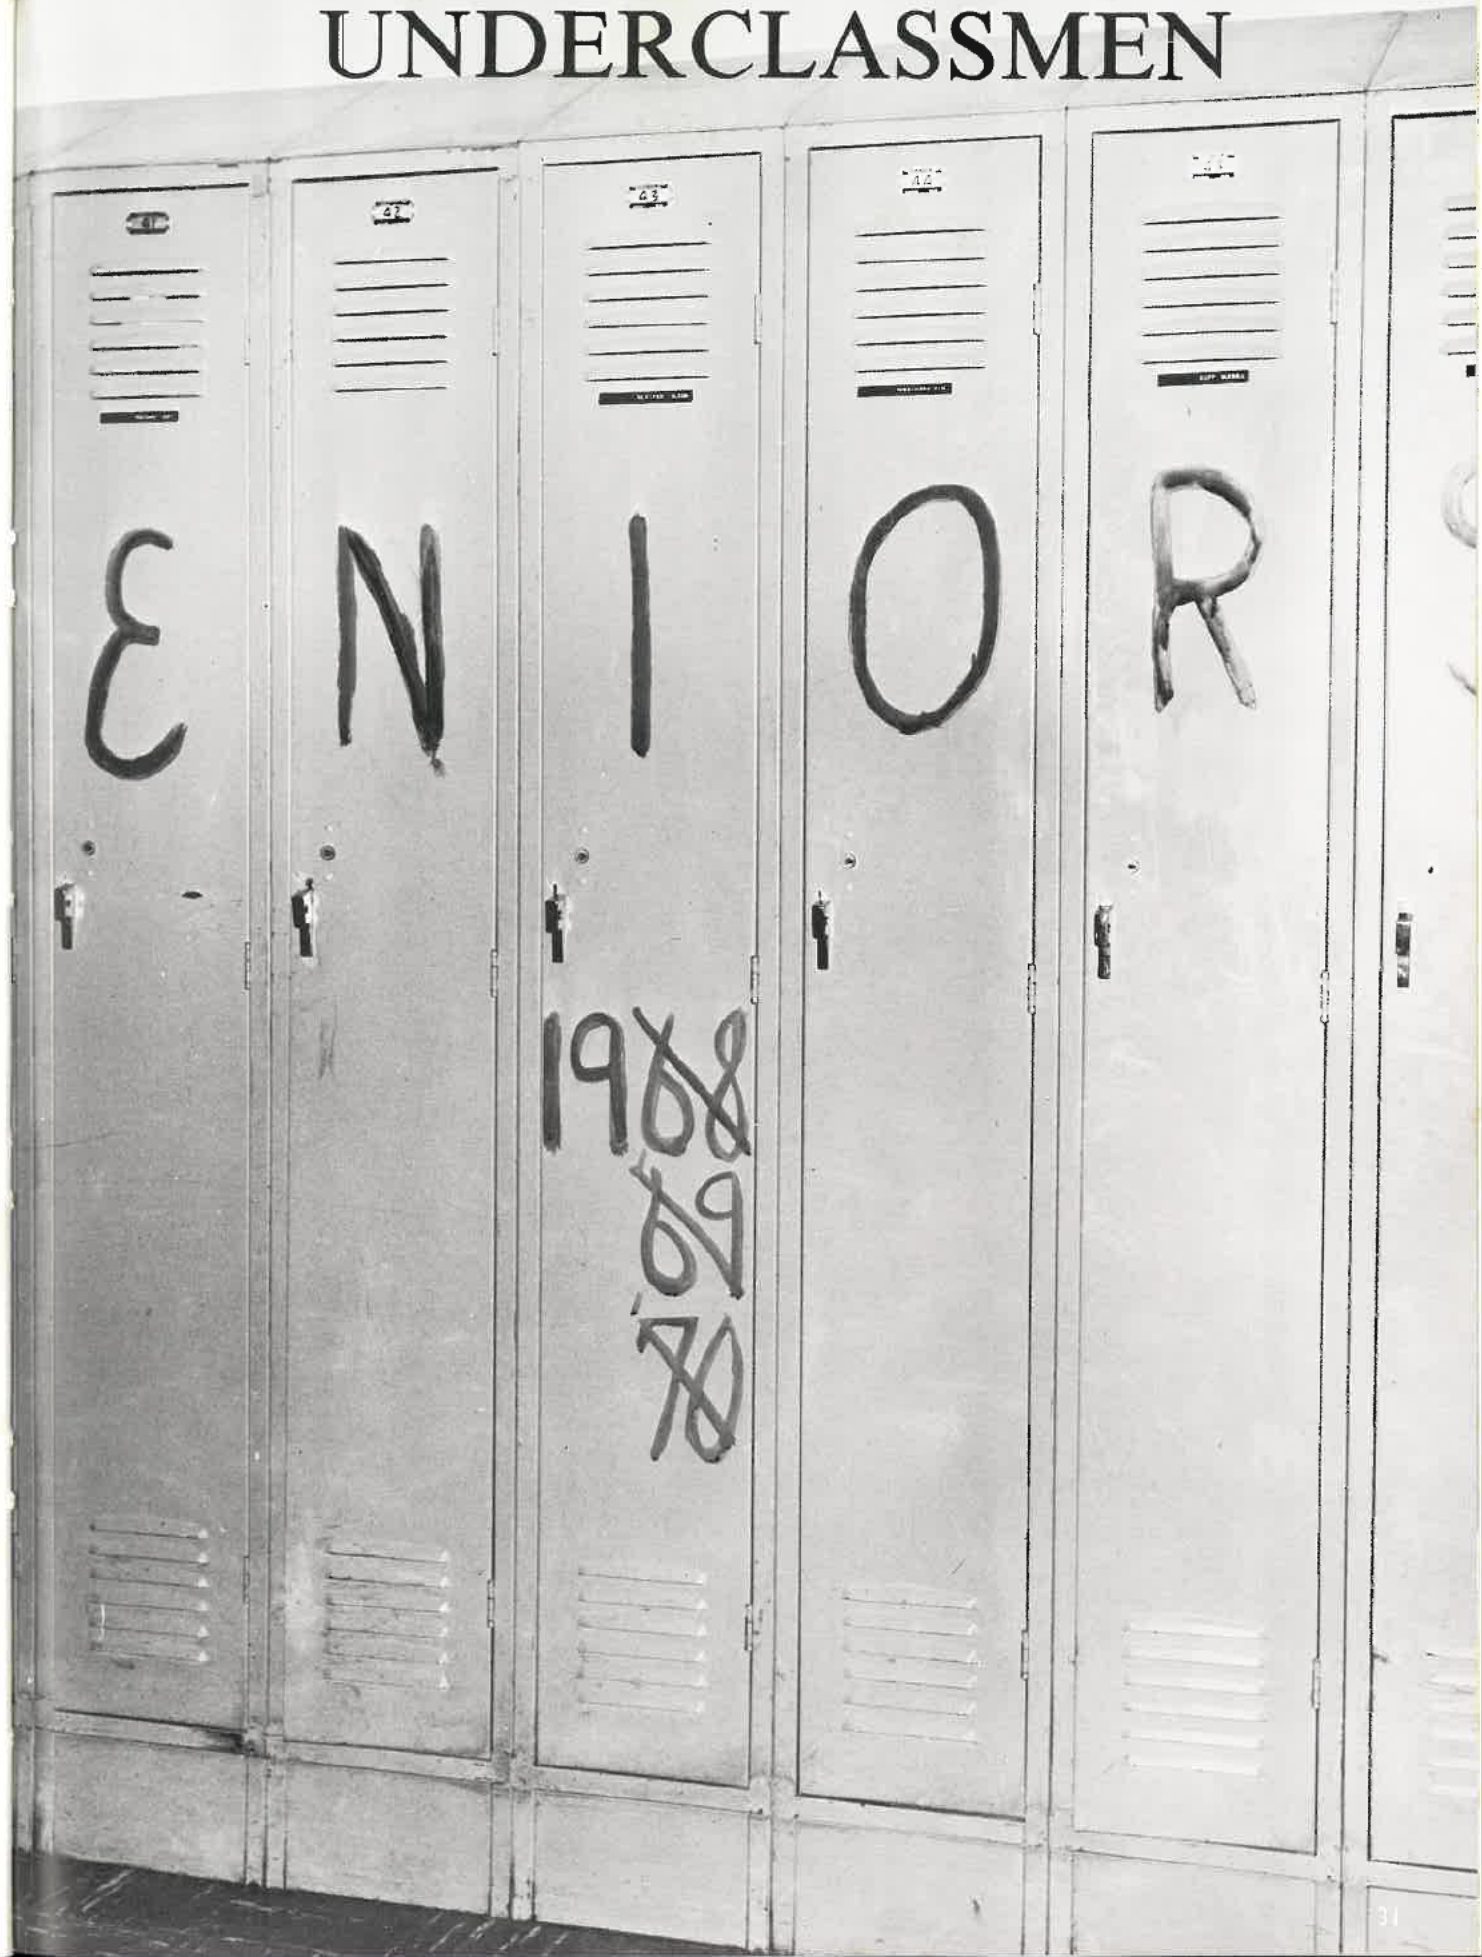 UNDERCLASSMEN
41 42 43 44
ENIORS
1968
69
70
31